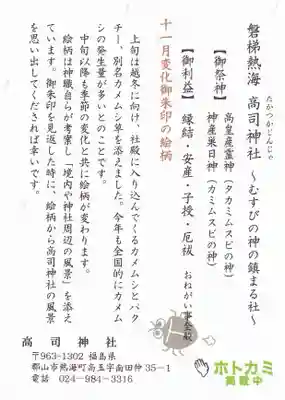 磐梯熱海 高司神社 〜むすびの神の鎮まる社〜
たかつかじんじゃ
【御祭神】
高皇産霊神(タカミムスビの神)
神産巣日神(カミムスビの神)
【御利益】
縁結・安産・子授・厄祓 おねがい事全般
十一月変化御朱印の絵柄
上旬は越冬に向け、社殿に入り込んでくるカメムシとパク
チー、別名カメムシ草を添えました。今年も全国的にカメム
シの発生量が多いとのことです。
中旬以降も季節の変化と共に絵柄が変わります。
絵柄は神職自らが考案し「境内や神社周辺の風景」を添え
ています。御朱印を見返した時に、絵柄から高司神社の風景
を思い出してくだされば幸いです。
高司神社
〒963-1302 福島県
郡山市熱海町高玉字南田仲35-1
電話 024-984-3316
ホトカミ
掲載中